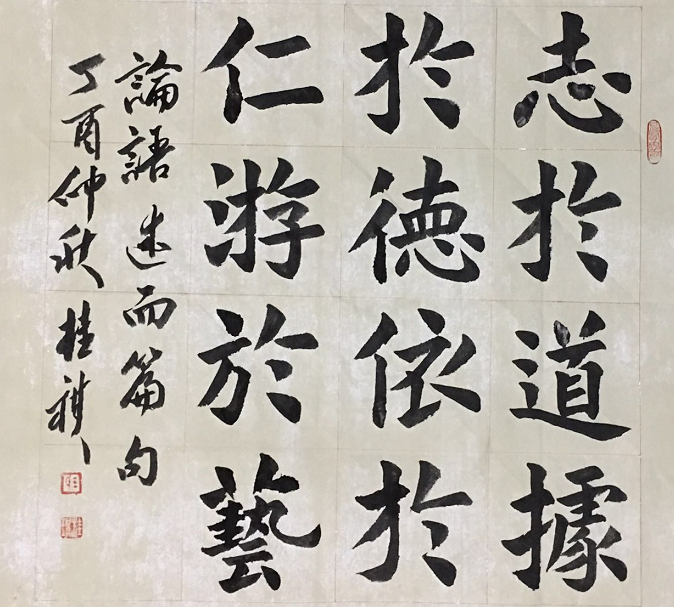 志於道據
於德依於
仁游於藝
論語述而篇句
丁酉仲秋 桂祺